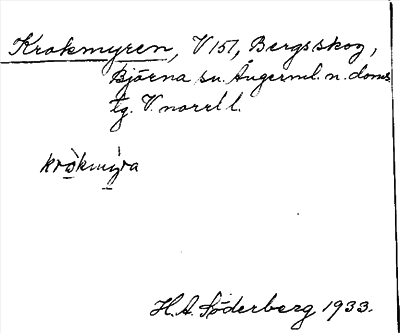 Krokmyren, V 151, Bergsskog,
Björna sn. Ångerml. n. doms
tg. V. norrl l.
kròkmýra
H. A. Söderberg 1933.